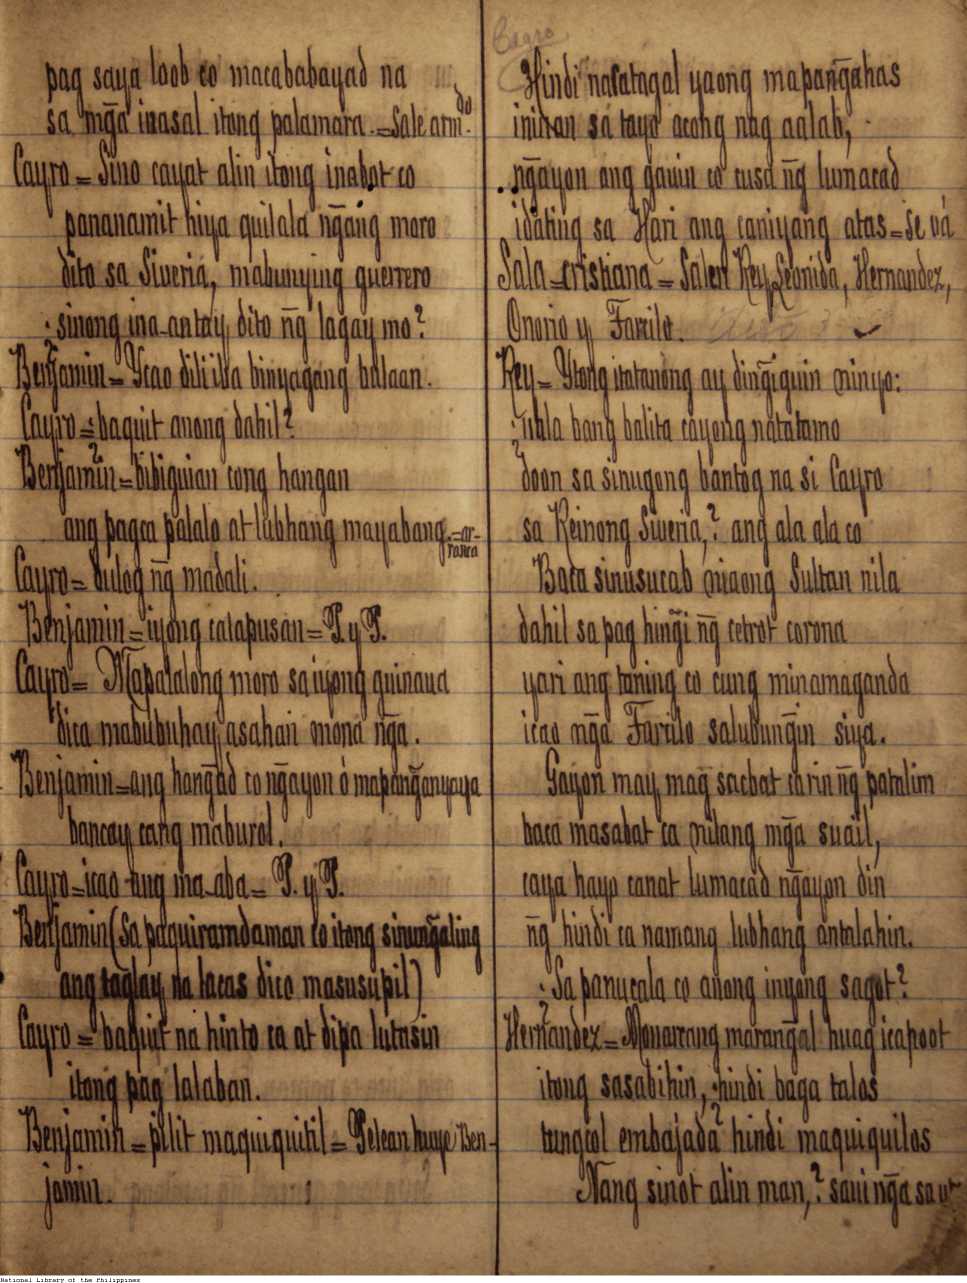 pag saya loob co macababayad na
sa mg̃a inasal itong palamara.=Sale armdo.
Cayro = Sino cayat alin itong inabot co
pananamit niya quilala ñgang moro
dito sa Siveria, mabunying guerrero
sinong ina-antay dito ñg lagay mo?
Benjamin = Ycao dili iba binyagang bulaan.
Cayro = baquit anong dahil?
Benjamin = bibiguian cong hangan
ang pagca palalo at lubhang mayabang.=ar-
ranca
Cayro = tulog ñg madali.
Benjamin = iyong catapusan = P. y P.
Cayro = Mapalalong moro sa iyong guinaua
dica mabubuhay asahan mona ñga.
Benjamin = ang hangad co ñgayon ó mapanganyaya
bancay cang maburol.
Cayro = icao ang ma-aba = P. y P.
Benjamin (Sa paquiramdaman co itong sinungaling
ang taglay na lacas dico masusupil)
Cayro = baquit na hinto ca at dipa lutasin
itong pag lalaban.
Benjamin = pilit maquiquitil = Pelean huye Ben-
jamin.
Cayro
Hindi nacatagal yaong mapañgahas
iniwan sa tayo acong nag aalab,
ñgayon ang gawin co cusa ñg lumacad
idating sa Hari ang caniyang atas = Se vá
Sala = cristiana = Salen Rey Leonida, Hernandez,
Onorio y Farcilo.
Rey = Ytong itatanong ay dinĝiguin ninyo:
uala bang balita cayong natatamo
doon sa sinugong bantog na si Cayro
sa Reinong Siveria,? ang ala ala co
Baca sinusucab niaong Sultan nila
dahil sa pag hinĝi ñg cetrot corona
yari ang toning co cung minamaganda
icao ñga Farcilo salubuñgin siya.
Gayon may mag sacbat carin ñg patalim
baca masabat ca nilang mg̃a suail,
caya hayo canat lumacad ñgayon din
ñg hindi ca namang lubhang antalahin.
Sa panucala co anong inyong sagot?
Hernandez = Monarcang maranĝal huag icapoot
itong sasabihin, hindi baga talos
tungcol embajada hindi maquiquilos
Nang sinot alin man,? saui ñga sa ut
National Library of the Philippines